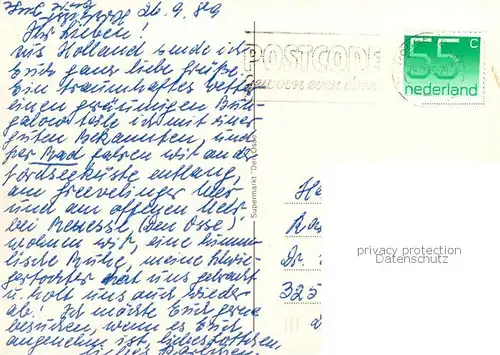 26. 9. 89
Ihr Lieben!
Aus Holland sende ich
Euch ganz liebe Grüße.
Ein traumhaftes Wetter
einen geräumigen Bun-
galow teile ich mit einer
guten Bekannten, und
per Rad fahren wir an der
Nordseeküste entlang,
am Grevelinger Meer
und am offenen Meer
bei Renesse (Den Osse)
wohnen wir, eine himm-
lische Ruhe, meine Schwie-
gertochter hat uns gebracht
u. holt uns auch wieder
ab! Ich möchte Euch gerne
besuchen, wenn es Euch
angenehm ist,
POSTCODE
gewoon even doen
55 c
nederland
Supermarkt "Den Osse"
325
privacy protection
Datenschutz